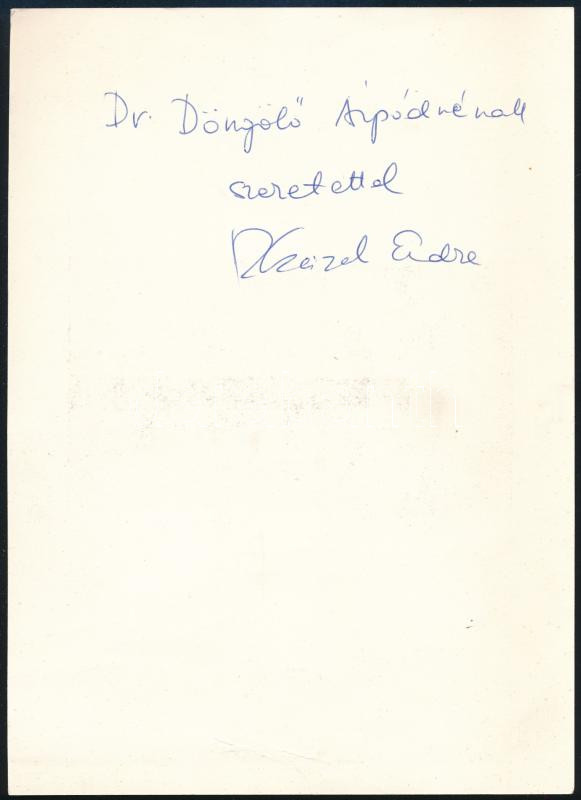 Dr. Döngölő Árpádnénak
szeretettel
Czeizel Endre